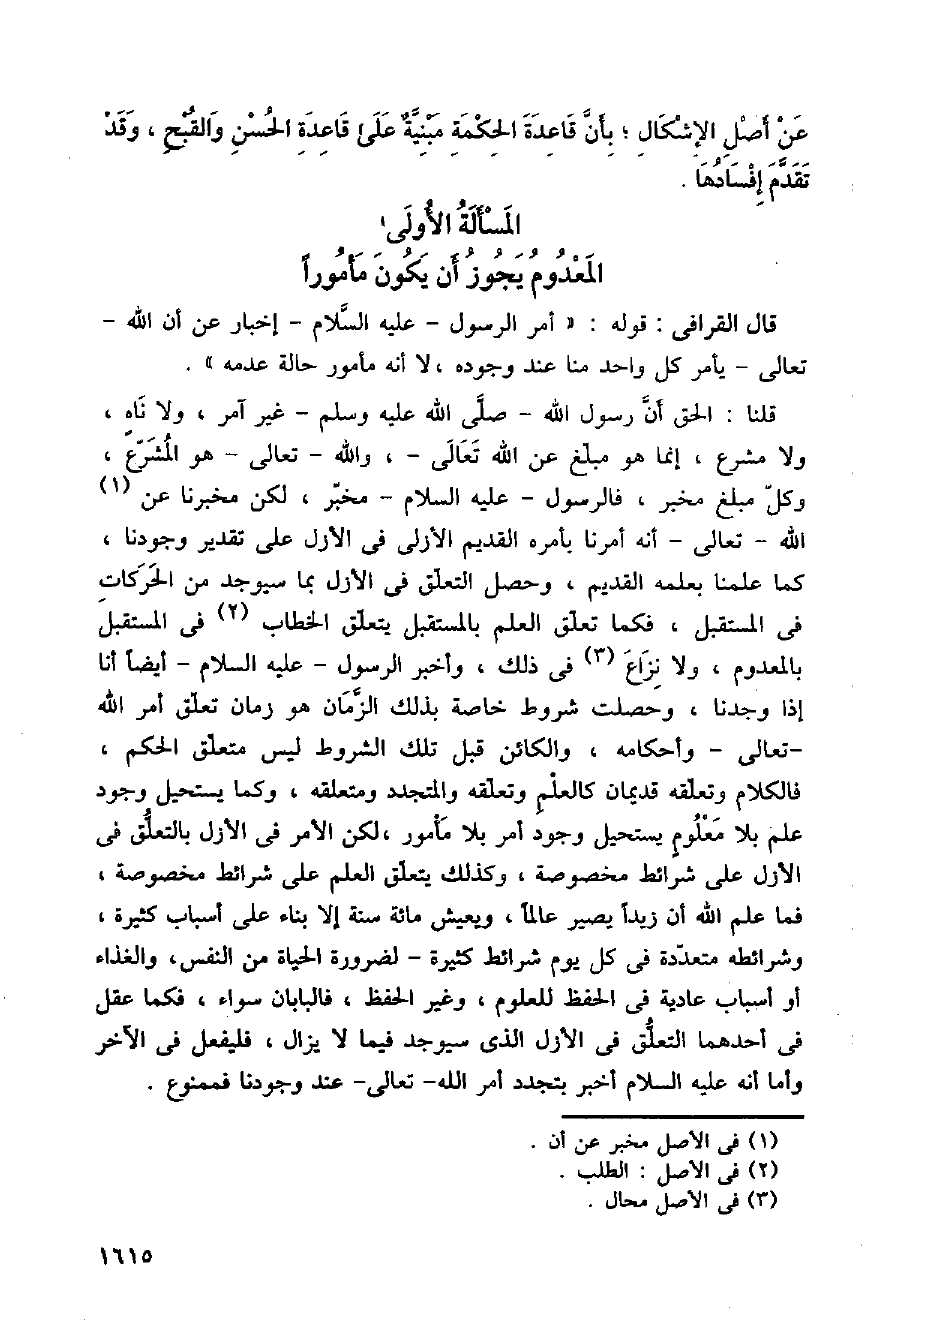 عَنْ أَصْلِ الإِشْكَال ؛ بِأَنَّ قَاعِدَةَ الحِكْمَةِ مَبْنِيَّةٌ عَلَىٰ قَاعِدَةِ الحُسْنِ وَالقُبْحِ ، وَقَدْ
تَقَدَّمَ إِفْسَادُهَا .
المَسْأَلَةُ الأُولَى
المَعْدُومُ يَجُوزُ أَن يَكُونَ مَأمُوراً
قال القرافى : قوله : « أمر الرسول - عليه السَّلام - إخبار عن أن الله -
تعالى - يأمر كل واحد منا عند وجوده ، لا أنه مأمور حالة عدمه » .
قلنا : الحق أنَّ رسول الله - صلَّى الله عليه وسلم - غير آمر ، ولا نَاهٍ ،
ولا مشرع ، إنما هو مبلغ عن الله تَعَالَى - ، والله - تعالى - هو المُشَرّع ،
وكلّ مبلغ مخبر ، فالرسول - عليه السلام - مخبّر ، لكن مخبرنا عن (١)
الله - تعالى - أنه أمرنا بأمره القديم الأزلى فى الأزل على تقدير وجودنا ،
كما علمنا بعلمه القديم ، وحصل التعلّق فى الأزل بما سيوجد من الحَرَكَاتِ
فى المستقبل ، فكما تعلّق العلم بالمستقبل يتعلّق الخطاب (٢) فى المستقبل
بالمعدوم ، ولا نِزَاعَ (٣) فى ذلك ، وأخبر الرسول - عليه السلام - أيضاً أنا
إذا وجدنا ، وحصلت شروط خاصة بذلك الزَّمَان هو زمان تعلّق أمر الله
-تعالى - وأحكامه ، والكائن قبل تلك الشروط ليس متعلّق الحكم ،
فالكلام وتعلّقه قديمان كالعلْمِ وتعلّقه والمتجدد ومتعلقه ، وكما يستحيل وجود
علم بلا مَعْلُومٍ يستحيل وجود أمر بلا مأمور ، لكن الأمر فى الأزل بالتعلُّق فى
الأزل على شرائط مخصوصة ، وكذلك يتعلّق العلم على شرائط مخصوصة ،
فما علم الله أن زيداً يصير عالماً ، ويعيش مائة سنة إلا بناء على أسباب كثيرة ،
وشرائطه متعدّدة فى كل يوم شرائط كثيرة - لضرورة الحياة من النفس، والغذاء
أو أسباب عادية فى الحفظ للعلوم ، وغير الحفظ ، فالبابان سواء ، فكما عقل
فى أحدهما التعلُّق فى الأزل الذى سيوجد فيما لا يزال ، فليفعل فى الآخر
وأما أنه عليه السلام أخبر بتجدد أمر الله- تعالى- عند وجودنا فممنوع .
(١) فى الأصل مخبر عن أن .
(٢) فى الأصل : الطلب .
(٣) فى الأصل محال .
١٦١٥